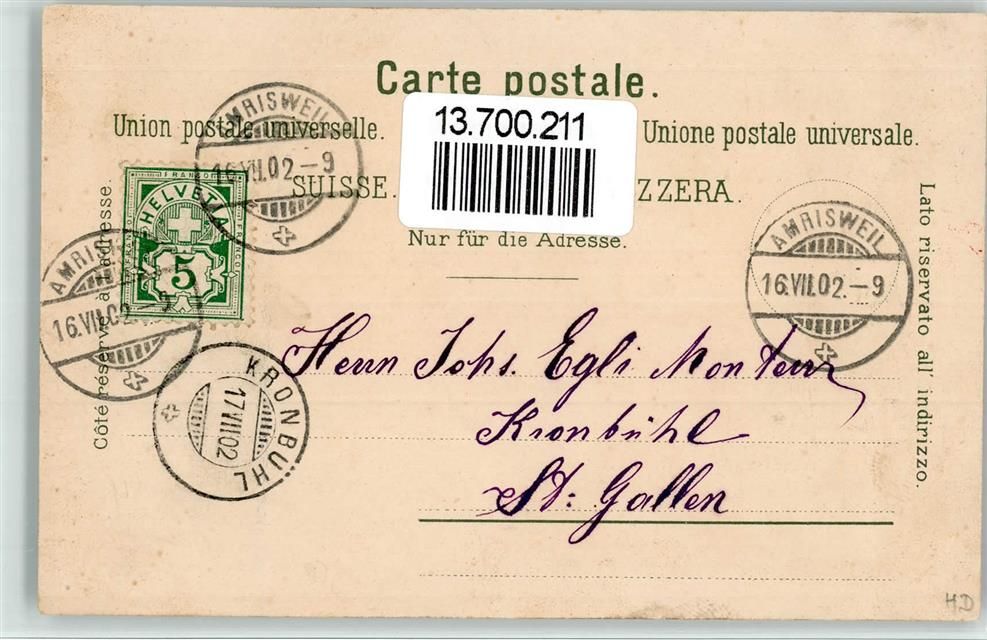 Carte postale.
Union postale universelle.
13.700.211
Unione postale universale.
SUISSE.
ZZERA.
Nur für die Adresse.
Côté réservé à l'adresse.
Lato riservato all' indirizzo.
FRANCO
HELVETIA
5
AMRISWEIL
16.VII.02.-9
AMRISWEIL
16.VII.02
AMRISWEIL
16.VII.02.-9
KRONBÜHL
17.VII.02
Herrn Johs. Egli Monteur
Kronbühl
St: Gallen
H.D